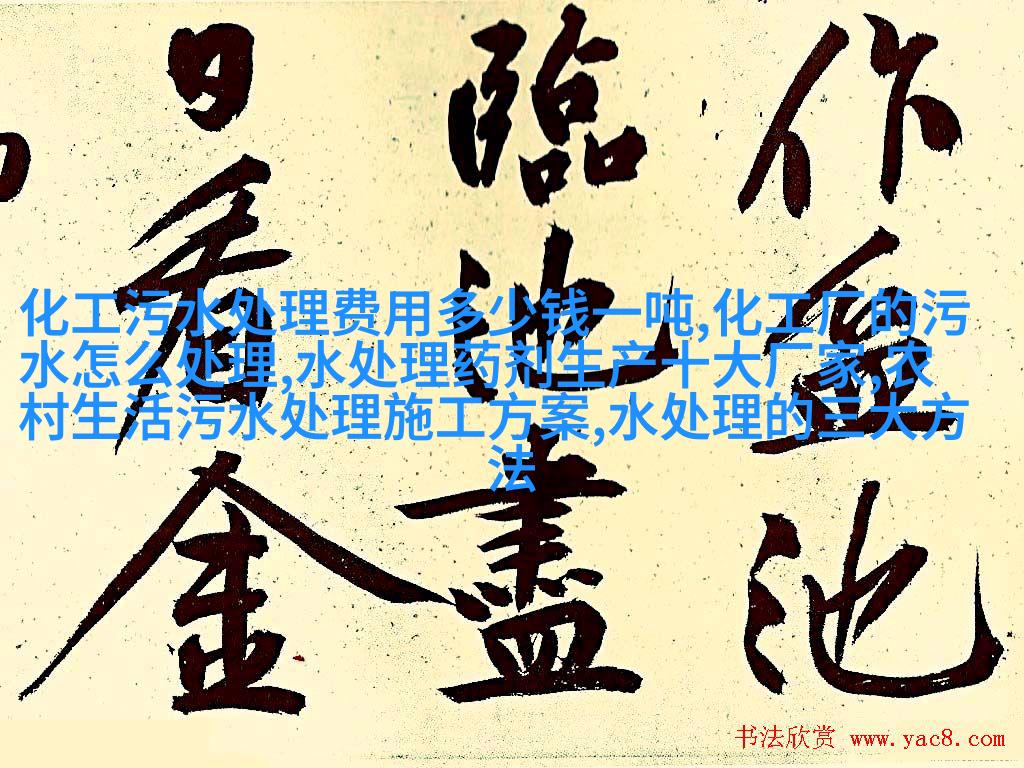 作盆池
臨池盡
日看金
化工污水处理费用多少钱一吨,化工厂的污
水怎么处理,水处理药剂生产十大厂家,农
村生活污水处理施工方案,水处理的三大方
法
书法欣赏 www.yac8.com